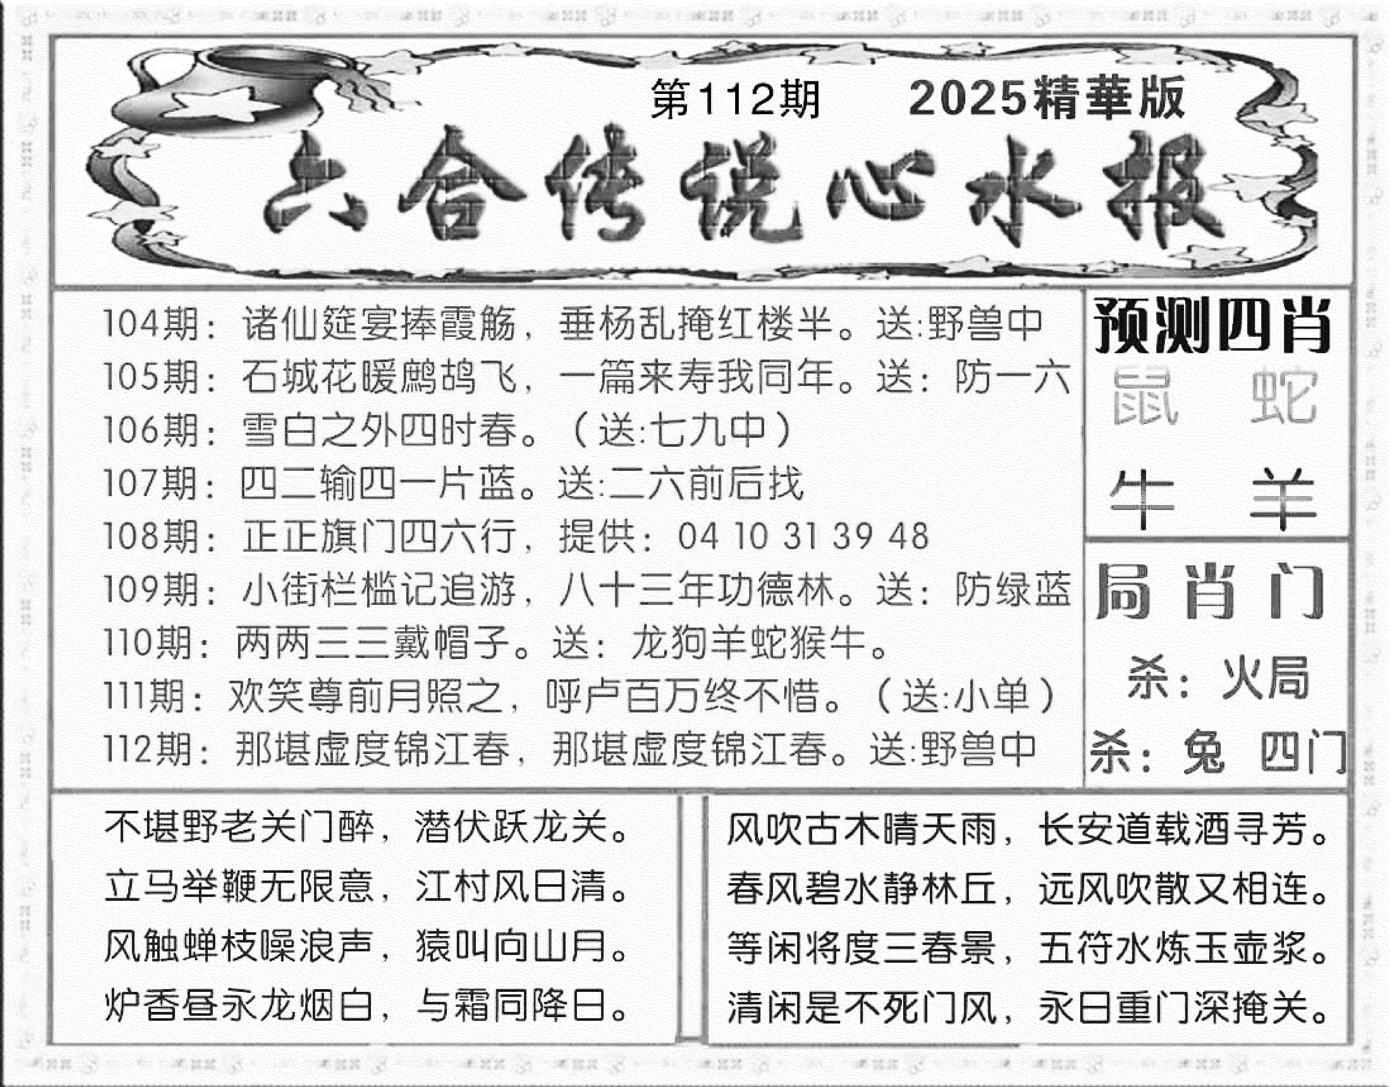 第112期 2025精華版
六合传说心水报
104期：诸仙筵宴捧霞觞，垂杨乱掩红楼半。送:野兽中
105期：石城花暖鹧鸪飞，一篇来寿我同年。送：防一六
106期：雪白之外四时春。（送:七九中）
107期：四二输四一片蓝。送:二六前后找
108期：正正旗门四六行，提供：04 10 31 39 48
109期：小街栏槛记追游，八十三年功德林。送：防绿蓝
110期：两两三三戴帽子。送：龙狗羊蛇猴牛。
111期：欢笑尊前月照之，呼卢百万终不惜。（送:小单）
112期：那堪虚度锦江春，那堪虚度锦江春。送:野兽中
预测四肖
鼠 蛇
牛 羊
局肖门
杀：火局
杀：兔 四门
不堪野老关门醉，潜伏跃龙关。
立马举鞭无限意，江村风日清。
风触蝉枝噪浪声，猿叫向山月。
炉香昼永龙烟白，与霜同降日。
风吹古木晴天雨，长安道载酒寻芳。
春风碧水静林丘，远风吹散又相连。
等闲将度三春景，五符水炼玉壶浆。
清闲是不死门风，永日重门深掩关。